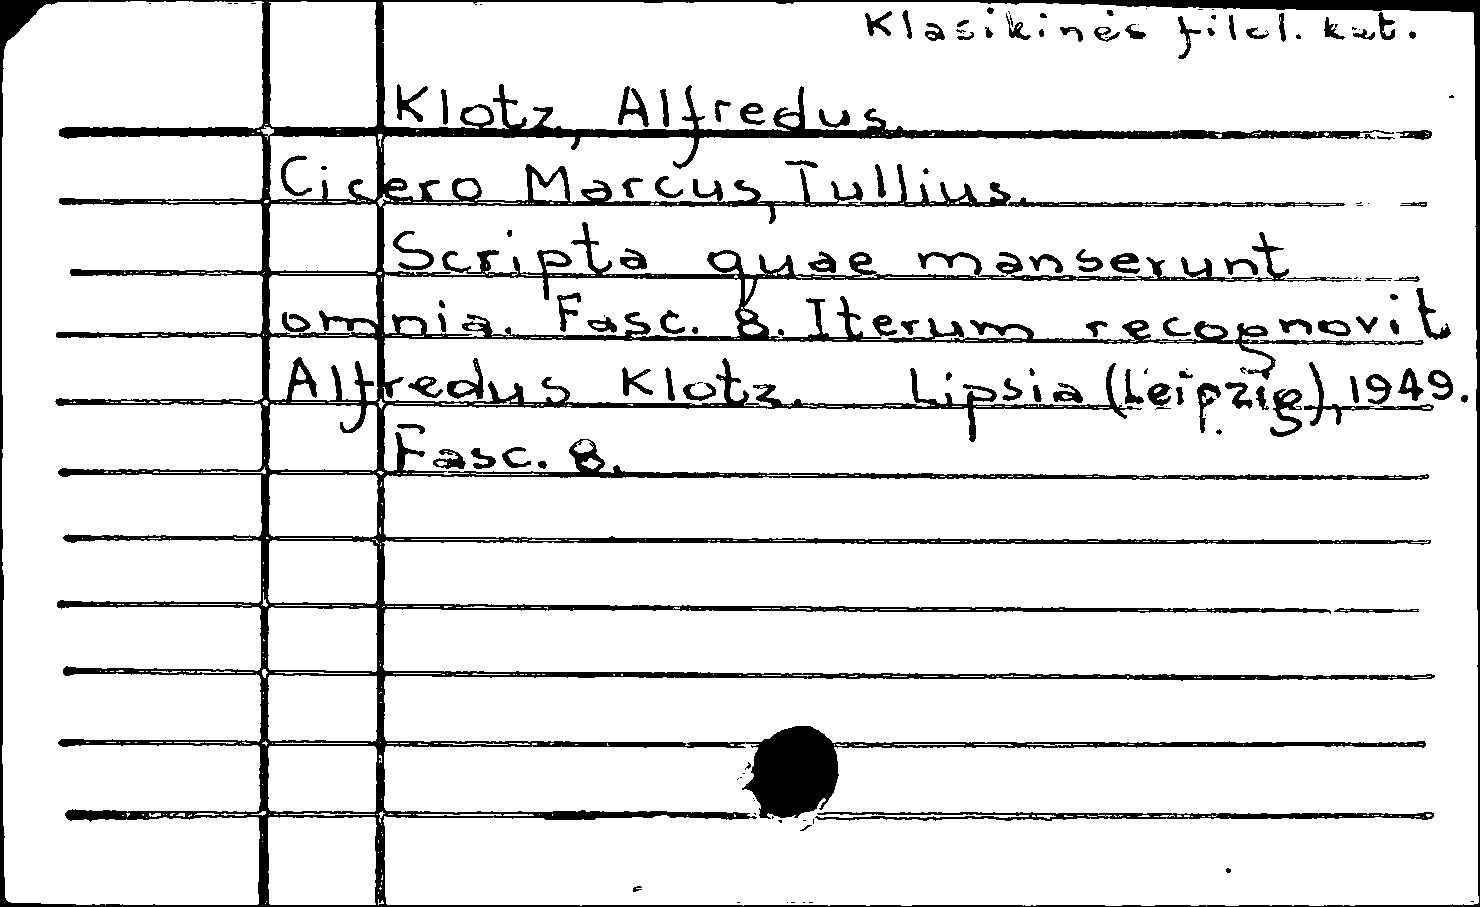 Klasikinės filol. kat.
Klotz, Alfredus.
Cicero Marcus, Tullius.
Scripta quae manserunt
omnia. Fasc. 8. Iterum recognovit
Alfredus Klotz. Lipsia (Leipzig), 1949.
Fasc. 8.